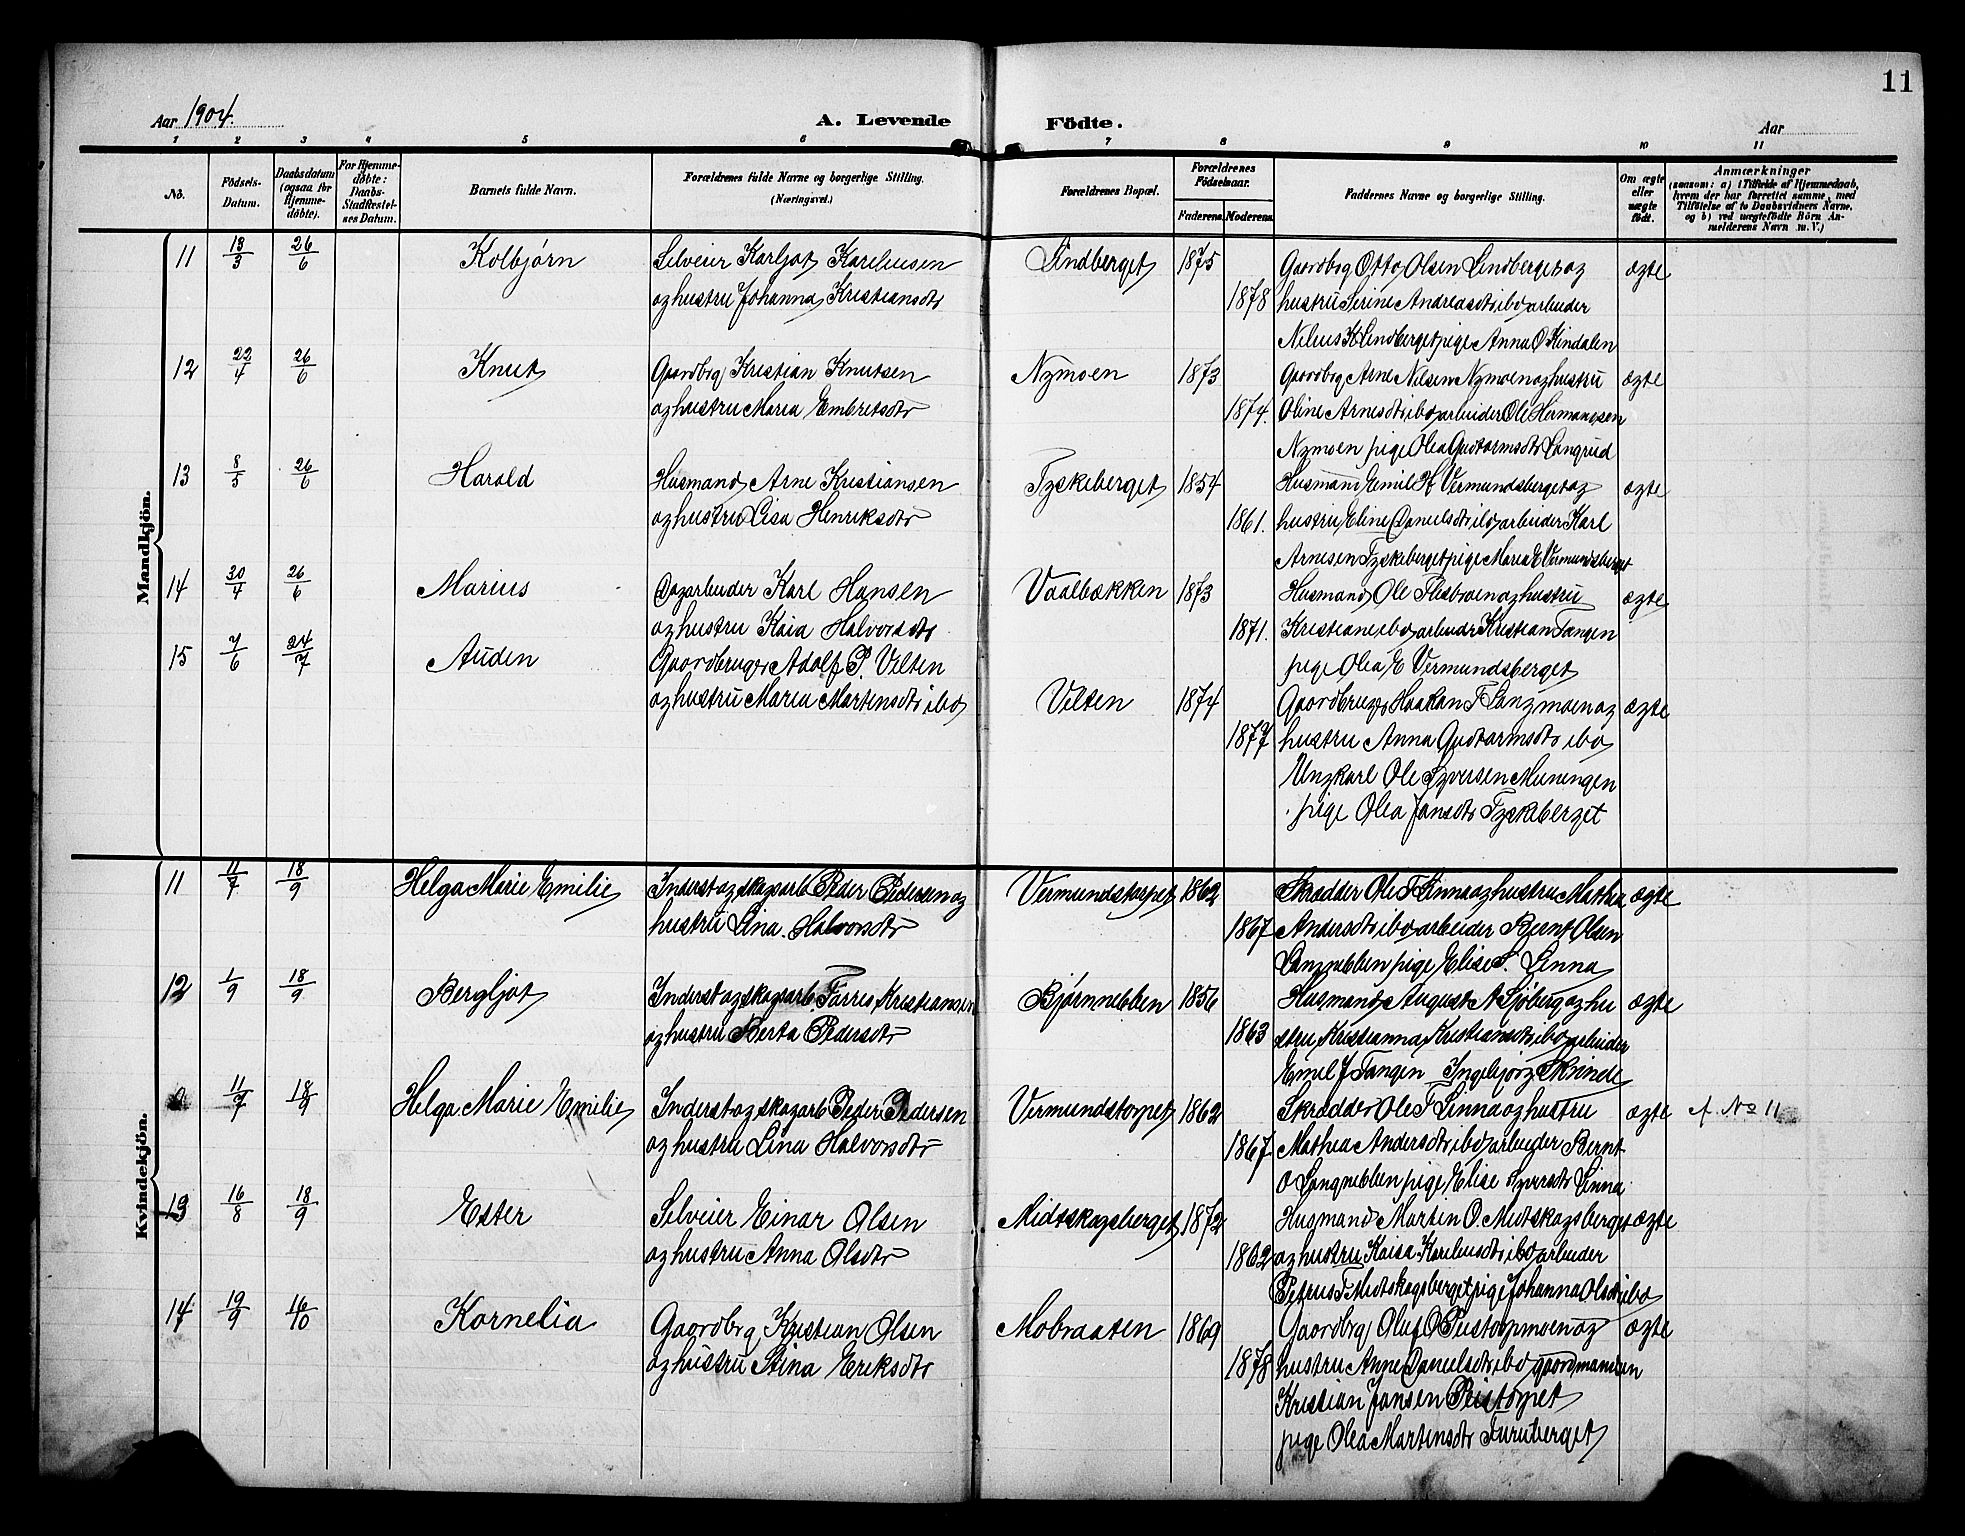 11
Aar 1904.
A. Levende Födte.
Aar
1 2 3 4 5 6 7 8 9 10 11
No.
Födsels-Datum.
Daabsdatum (ogsaa for Hjemmedöbte).
For Hjemmedøbte: Daabs-Stadfæstelses Datum.
Barnets fulde Navn.
Forældrenes fulde Navne og borgerlige Stilling.
(Næringsvei.)
Forældrenes Bopæl.
Forældrenes Fødselsaar.
Faderens. Moderens.
Faddernes Navne og borgerlige Stilling.
Om ægte eller uægte födt.
Anmærkninger
(saasom: a) i Tilfælde af Hjemmedaab, hvem der har forrettet samme, med Tilföielse af to Daabsvidners Navne, og b) ved uægtefødte Börn Anmelderens Navn m. V.)
Mandkjön.
11 13/3 26/6 Kolbjørn Selveier Karljot Karelussen Lindberget 1875 Gaardbrg Otto Olsen Lindberget og ægte
og hustru Johanna Kristiansdtr 1878 hustru Serine Andreasdtr ibd arbeider
Nilius K Lindberget pige Anna O Kindalen
12 22/4 26/6 Knut Gaardbrg Kristian Knutsen Nymoen 1873 Gaardbrg Arne Nilsen Nymoen og hustru ægte
og hustru Maria Embretsdtr 1874. Oline Arnesdtr ibd arbeider Ole Hermansen
Nymoen pige Olea Gudtormsdtr Langrud
13 8/5 26/6 Harald Husmand Arne Kristiansen Tyskeberget 1854 Husmand Emil H Vermundsberget og ægte
og hustru Lisa Henriksdtr 1861. hustru Eline Danielsdtr ibd arbeider Karl
Arnesen Tyskeberget pige Maria E Vermundsberget
14 30/4 26/6 Marius Dagarbeider Karl Hansen Vaalbækken 1873 Husmand Ole Flisbroen og hustru ægte
og hustru Kaia Halvorsdtr 1871. Kristiane ibd arbeidr Kristian Tangen
pige Olea E Vermundsberget
15 7/6 24/7 Auden Gaardbruger Adolf P. Velten
og hustru Maria Martensdtr ibd Velten 1874 Gaardbruger Haakan T Langmoen og ægte
1877 hustru Anna Gudtormsdtr ibd
Ungkarl Ole Syversen Meningen
pige Olea Jansdtr Tyskeberget
Kvindekjön.
11 11/7 18/9 Helga Marie Emilie Inderst og skogsarb Peder Pedersen og Vermundstorpet 1862 Skrædder Ole T Linna og hustru Mathea ægte
hustru Lina Halvorsdtr 1867 Andersdtr ibd arbeider Bernt Olsen
Langnebben pige Elise S. Linna
12 1/9 18/9 Bergljot Inderst og skogsarb. Tarris Kristiansen Bjørnnebben 1856 Husmand August A Sjöberg og hu ægte
og hustru Berta Pedersdtr 1863 stru Kristianna Kristiansdtr ibd arbeider
Emil J Tangen Ingebjørg Skrinde
11/7 18/9 Helga Marie Emilie Inderst og skogarb Peder Pedersen Vermundstorpet 1862 Skrædder Ole T Linna og hustru ægte f. No 11
og hustru Lina Halvorsdtr 1867. Mathea Andersdtr ibd arbeider Bernt
O Langnebben pige Elise Syversdtr Linna
13 16/8 18/9 Ester Selveier Einar Olsen Midtskogsberget 1872 Husmand Martin O. Midtskogsberget ægte
og hustru Anna Olsdtr 1862 og hustru Kaisa Karelusdtr ibd arbeider
Petrus T Midtskogsberget pige Johanna Olsdtr ibd
14 19/9 16/10 Kornelia Gaardbrg Kristian Olsen Mobraaten 1869 Gaardbrg Oluf O Pustorpmoen og ægte
og hustru Stina Eriksdtr 1878 hustru Anne Danielsdtr ibd gaardmanden
Kristian Jansen Peistorpet
pige Olea Martinsdtr Furuberget